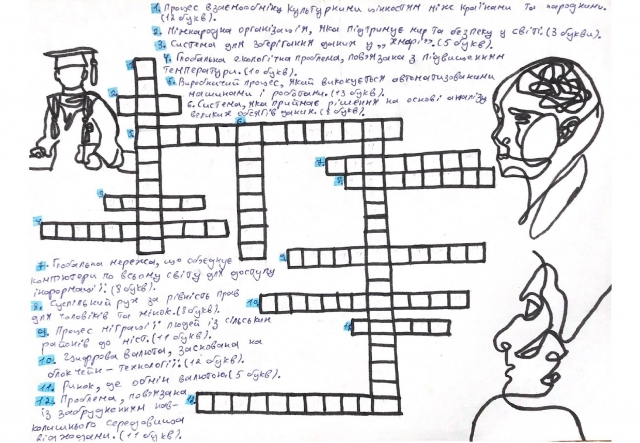 1. Процес взаємообміну культурними цінностями між країнами та народами.
(12 букв).
2. Міжнародна організація, яка підтримує мир та безпеку у світі. (3 букви).
3. Система для зберігання даних у „хмарі". (5 букв).
4. Глобальна екологічна проблема, пов'язана з підвищенням
температури. (10 букв).
5. Виробничий процес, який виконується автоматизованими
машинами і роботами. (13 букв).
6. Система, яка приймає рішення на основі аналізу
великих обсягів даних. (8 букв).
7. Глобальна мережа, що об'єднує
комп'ютери по всьому світу для доступу
інформації. (8 букв).
8. Суспільний рух за рівність прав
для чоловіків та жінок. (8 букв).
9. Процес міграції людей із сільських
районів до міст. (11 букв).
10. Цифрова валюта, заснована на
блокчейн-технології. (12 букв).
11. Ринок, де обмін валютою. (5 букв).
12. Проблема, пов'язана
із забрудненням нав-
колишнього середовища
відходами. (11 букв).